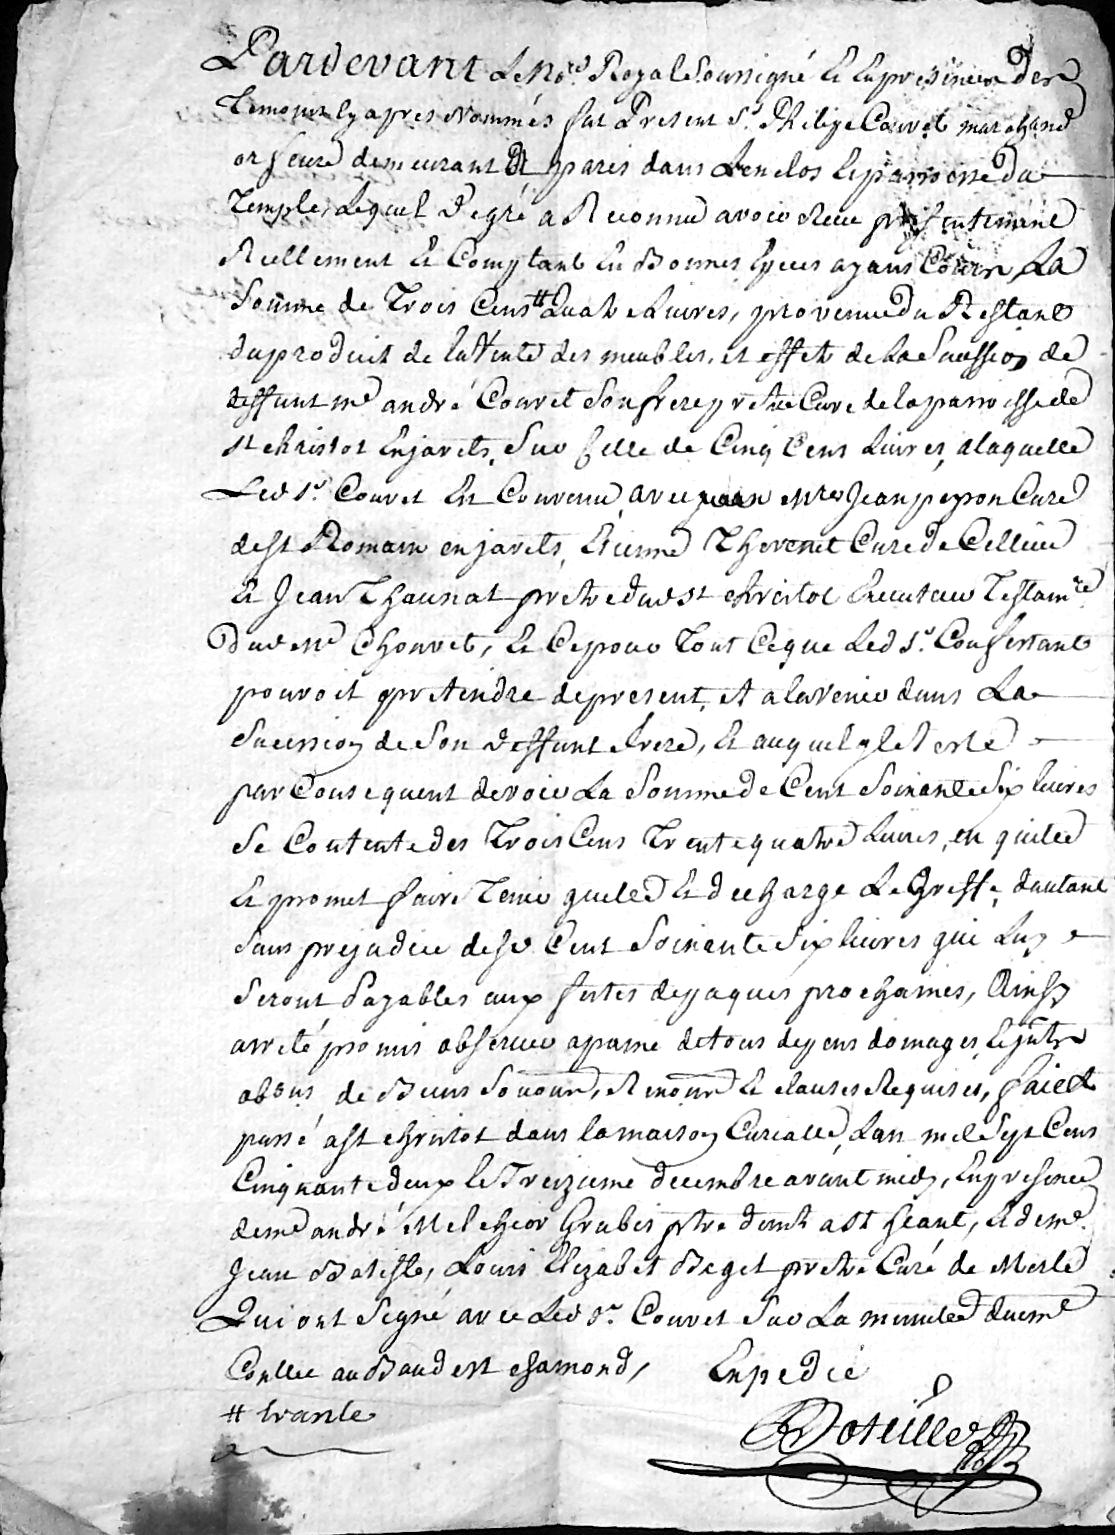 Pardevant Le No.re Royal Soussigné Et En presence des
Temoins Cy apres Nommés fut Present S.r Philipe Couvet marchand
orfevre demeurant A paris dans Lenclos Et parroisse du
Temple, Lequel De gré a Reconnu avoir Receu presentement
Reellement Et Comptant En Bonnes Especes ayans Cours, La
Somme de Trois Cens # Quatre Livres, provenue du Restant
du produit de la Vente des meubles, et effets de la Sucession de
deffunt m.e andré Couvet Son frere prestre Curé de la parroisse de
st christot En jarets, Sur Celle de Cinq Cens Livres, a laquelle
Led S.r Couvet Est Convenu, avec M.res Jean peyron Curé
de St Romain en jarets, Etienne Thevenet Curé de Cellieu
Et Jean Thaunat prestre dud st christot Executeur Testam.re
Dud m.e Chouvet, Et Ce pour Tout Ce que Led S.r Confessant
pouvoit pretendre de present, et a lavenir dans La
Sucession de Son deffunt frere, Et auquel il Reste
par Consequent devoir La Somme de Cent Soixante Six livres
Se Contente des Trois Cens Trente quatre Livres, en quitte
Et promet faire Tenir quitte Et decharge Le Greffe, dautant
Sans prejudice desd Cent Soixante Six livres qui Luy
Seront Payables aux festes de paques prochaines, Ainsy
arreté promis observer a paine de tous depens domages, Et jntr
obons de Biens Soumon, Renonon Et clauses Requises, fait Et
passé a St christot dans la maison Curialle, Lan mil Sept Cens
Cinquante deux le Treizieme decembre avant midy, En presence
de m.e andré Melchior Grubis ptre dud st heant, Et de m.e
Jean Batiste, Louis Elizabet Baget prestre Curé de Marlé
Qui ont Signé avec Led S.r Couvet Sur La minutte duem.t
Conllee au Bau de st chamond, Expedié
# trante
Boteille